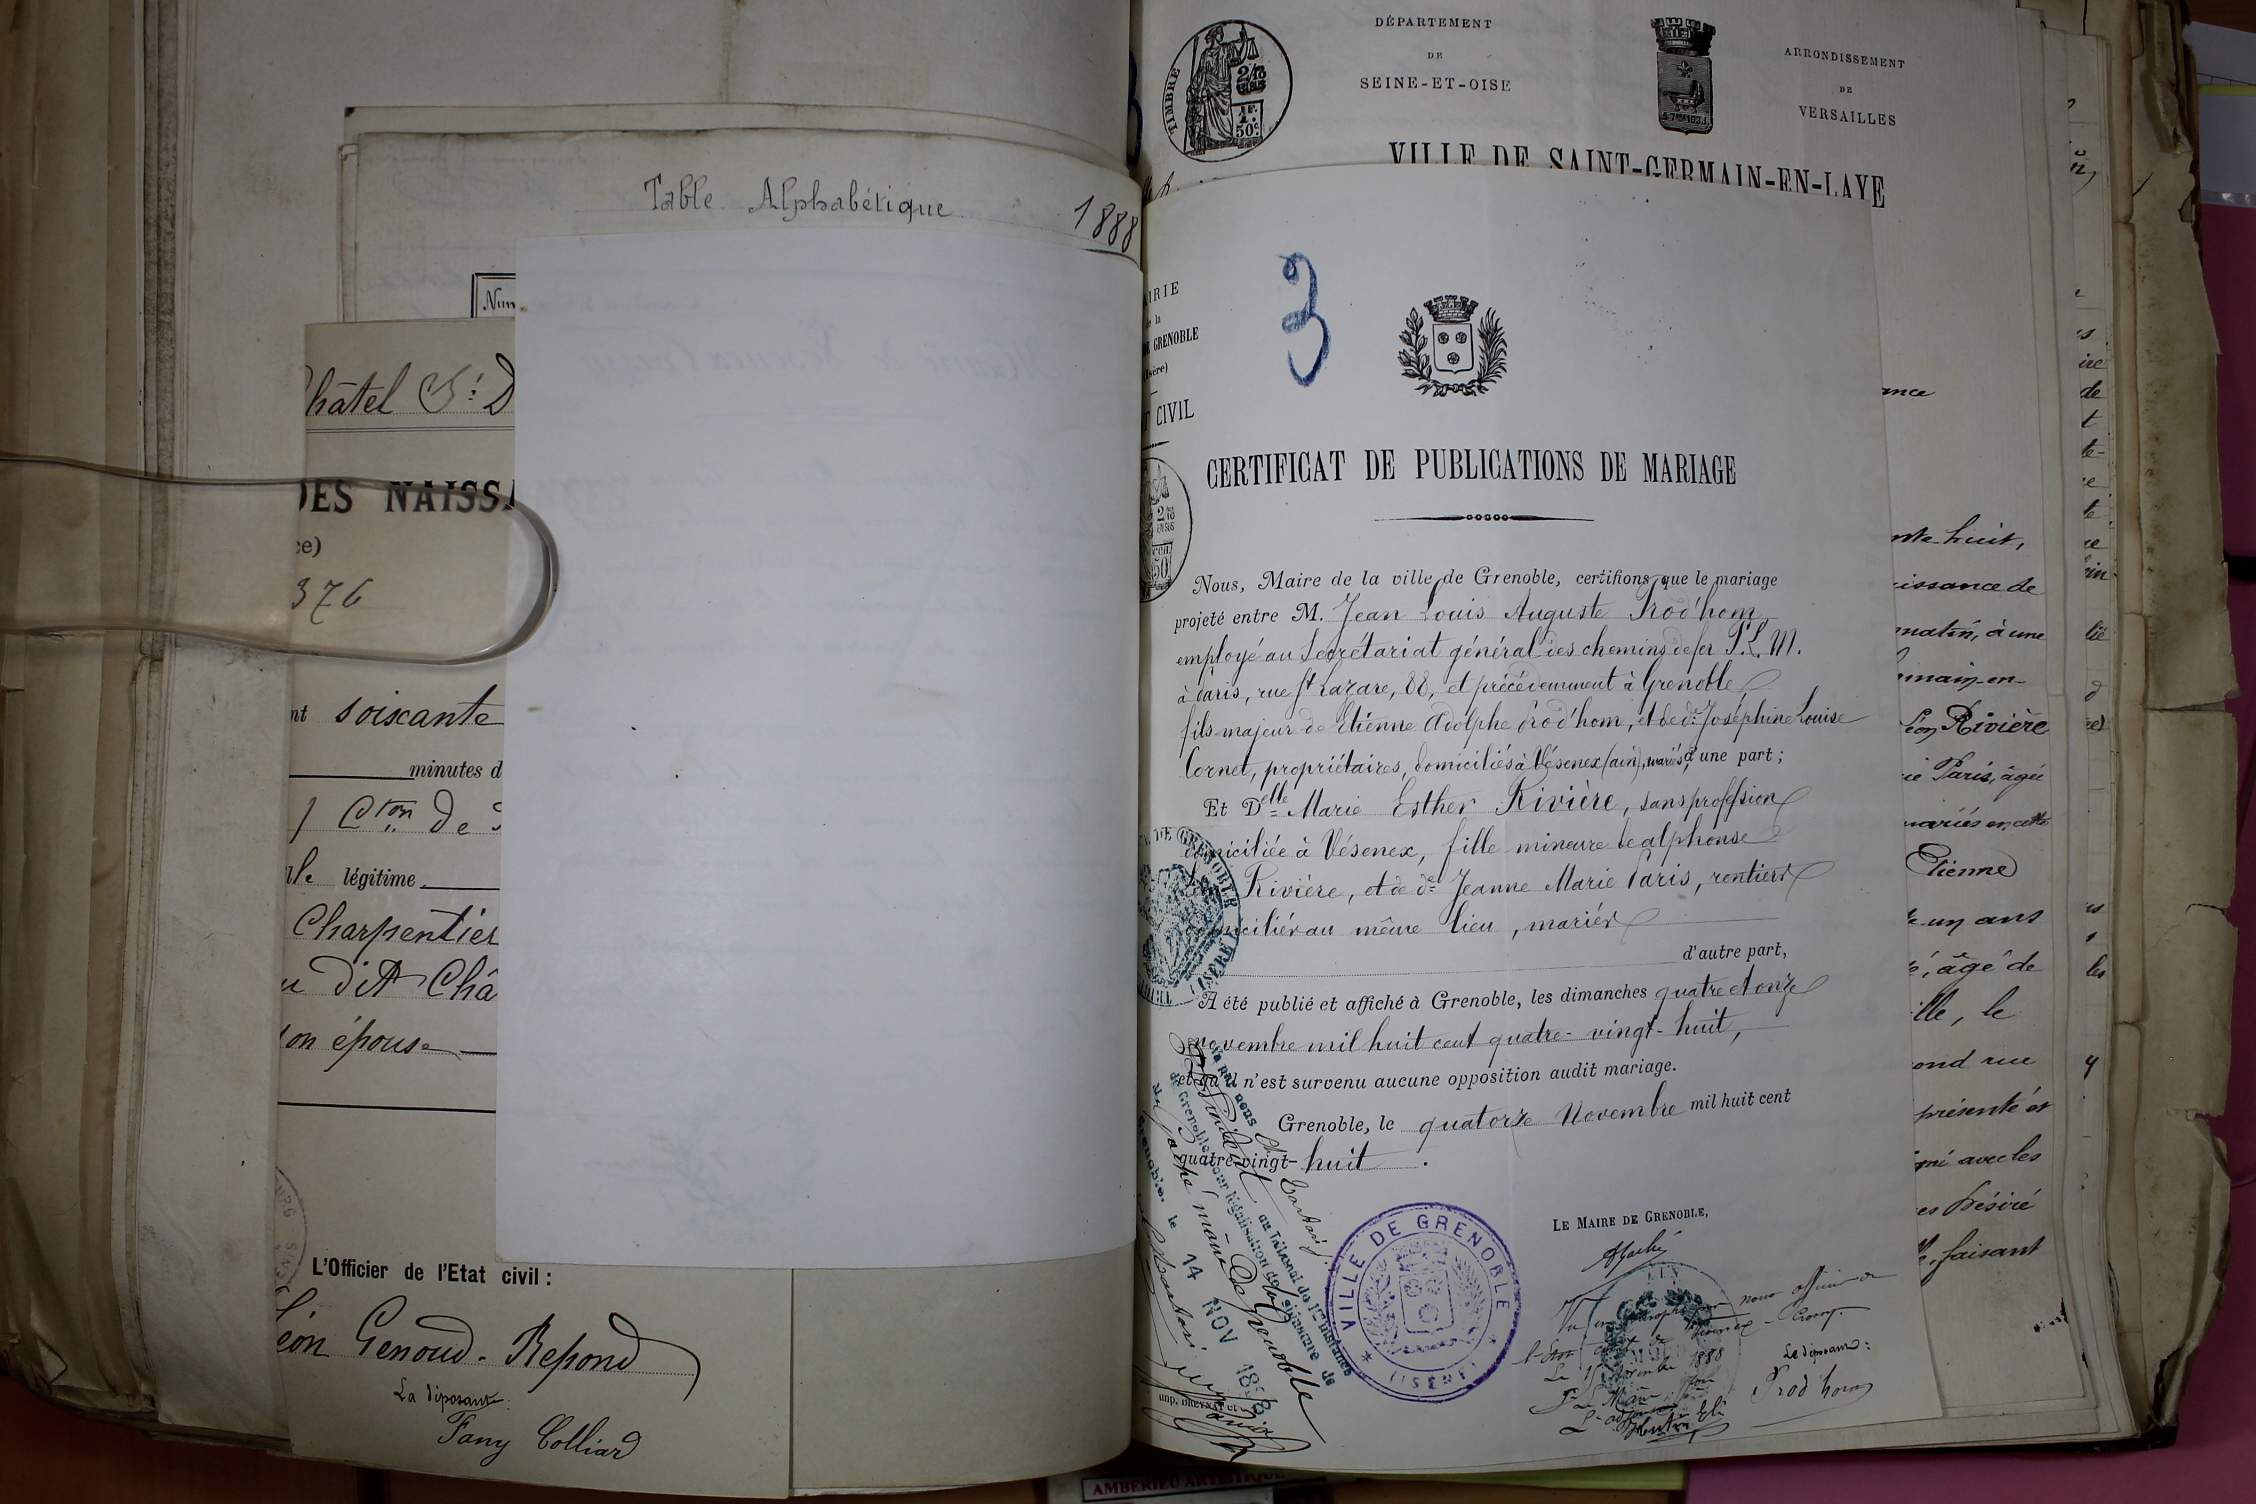 Table Alphabétique
1888
Châtel St D
DES NAISSA
ce)
376
nt soixante
minutes d
Cton de
légitime
Charpentier
u dit Châ
son épouse
L'Officier de l'Etat civil :
Léon Genoud-Repond
La déposante :
Fany Colliard
TIMBRE
DÉPARTEMENT
DE
SEINE-ET-OISE
ARRONDISSEMENT
DE
VERSAILLES
VILLE DE SAINT-GERMAIN-EN-LAYE
AIRIE
de la
DE GRENOBLE
(Isère)
T CIVIL
3
CERTIFICAT DE PUBLICATIONS DE MARIAGE
Nous, Maire de la ville de Grenoble, certifions que le mariage
projeté entre M. Jean Louis Auguste Prod'hom
employé au Secrétariat général des chemins de fer P.L.M.
à Paris, rue St Lazare, 88, et précédemment à Grenoble
fils majeur de Etienne Adolphe Prod'hom, et de de Joséphine Louise
Cornet, propriétaires, domiciliés à Vésenex (ain), mariés, d'une part ;
Et Delle Marie Esther Rivière, sans profession
domiciliée à Vésenex, fille mineure de alphonse
Léon Rivière, et de de Jeanne Marie Paris, rentiers
domiciliés au même lieu, mariés
d'autre part,
A été publié et affiché à Grenoble, les dimanches quatre et onze
novembre mil huit cent quatre-vingt-huit,
et qu'il n'est survenu aucune opposition audit mariage.
Grenoble, le quatorze Novembre mil huit cent
quatre-vingt-huit.
LE MAIRE DE GRENOBLE,
VILLE DE GRENOBLE
(ISÈRE)
14 NOV 1888
Vu nous officier de
l'Etat
Le 15 Novembre 1888
Le déposant :
Prod'hom
ance
nte huit,
issance de
matin, à une
rmain-en-
Léon Rivière
ie Paris, âgée
mariés en cette
Etienne
te un ans
é, âgé de
ille, le
ond rue
présenté et
gné avec les
es Désiré
faisant
AMBERIEU ARTISTIQUE